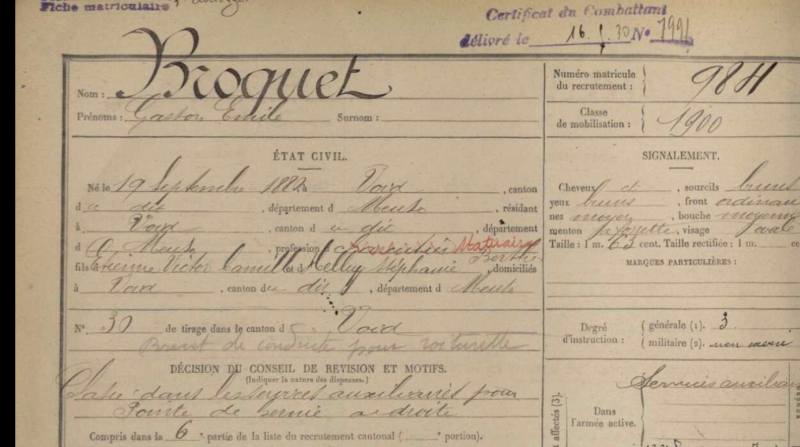 Fiche matriculaire
Certificat du Combattant
délivré le 16.1.30 N° 7991
Nom : Broquet
Prénoms : Gaston Emile Surnom :
Numéro matricule du recrutement : 984
Classe de mobilisation : 1900
ÉTAT CIVIL.
Né le 19 Septembre 188 Void, canton
d u dit, département d Meuse, résidant
à Void, canton d u dit département
d Meuse, profession
fils d Etienne Victor Camille et d Melluy Stéphanie, domiciliés
à Void, canton du dit, département d Meuse
N° 30 de tirage dans le canton d Void
Brevet de conduite pour voiturette
DÉCISION DU CONSEIL DE RÉVISION ET MOTIFS.
(Indiquer la nature des dispenses.)
Classé dans les services auxiliaires pour
Pointe de hernie à droite
Compris dans la 6e partie de la liste de recrutement cantonal ( portion).
SIGNALEMENT.
Cheveux et, sourcils bruns
yeux bruns, front ordinair
nez moyen, bouche moyenne
menton à fossette, visage ovale
Taille : 1 m. 63 cent. Taille rectifiée : 1 m. ce
MARQUES PARTICULIÈRES :
Degré d'instruction : générale (1). 3
militaire (2). non exercé
Services auxiliair
Dans l'armée active.
affectés (3).